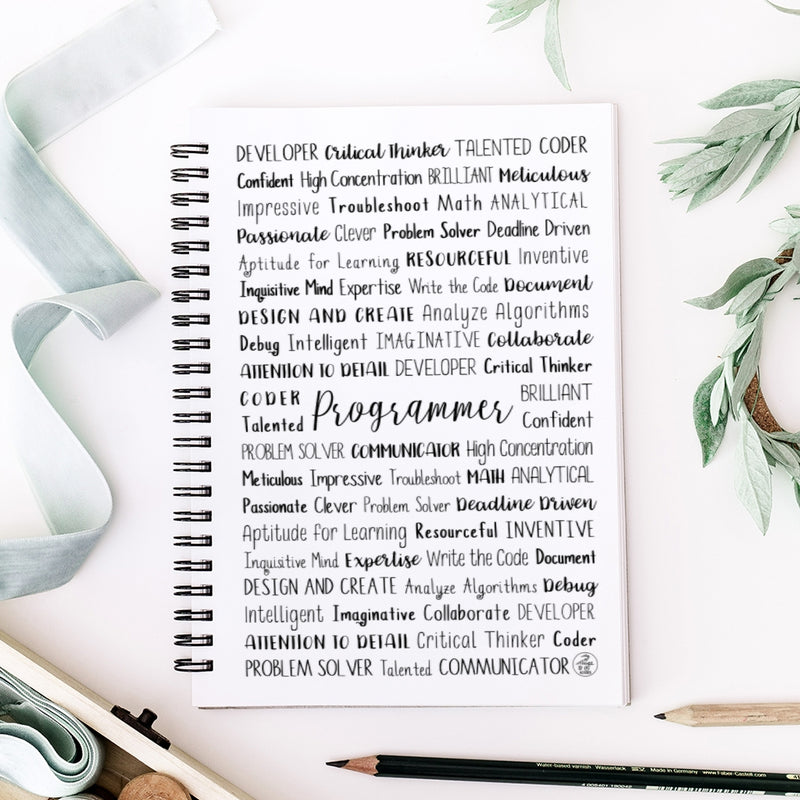 DEVELOPER Critical Thinker TALENTED CODER
Confident High Concentration BRILLIANT Meticulous
Impressive Troubleshoot Math ANALYTICAL
Passionate Clever Problem Solver Deadline Driven
Aptitude for Learning RESOURCEFUL Inventive
Inquisitive Mind Expertise Write the Code Document
DESIGN AND CREATE Analyze Algorithms
Debug Intelligent IMAGINATIVE Collaborate
ATTENTION TO DETAIL DEVELOPER Critical Thinker
CODER Programmer BRILLIANT
Talented Confident
PROBLEM SOLVER COMMUNICATOR High Concentration
Meticulous Impressive Troubleshoot MATH ANALYTICAL
Passionate Clever Problem Solver Deadline Driven
Aptitude for Learning Resourceful INVENTIVE
Inquisitive Mind Expertise Write the Code Document
DESIGN AND CREATE Analyze Algorithms Debug
Intelligent Imaginative Collaborate DEVELOPER
ATTENTION TO DETAIL Critical Thinker Coder
PROBLEM SOLVER Talented COMMUNICATOR
Water-based varnish Wasserlack Made in Germany www.Faber-Castell.com